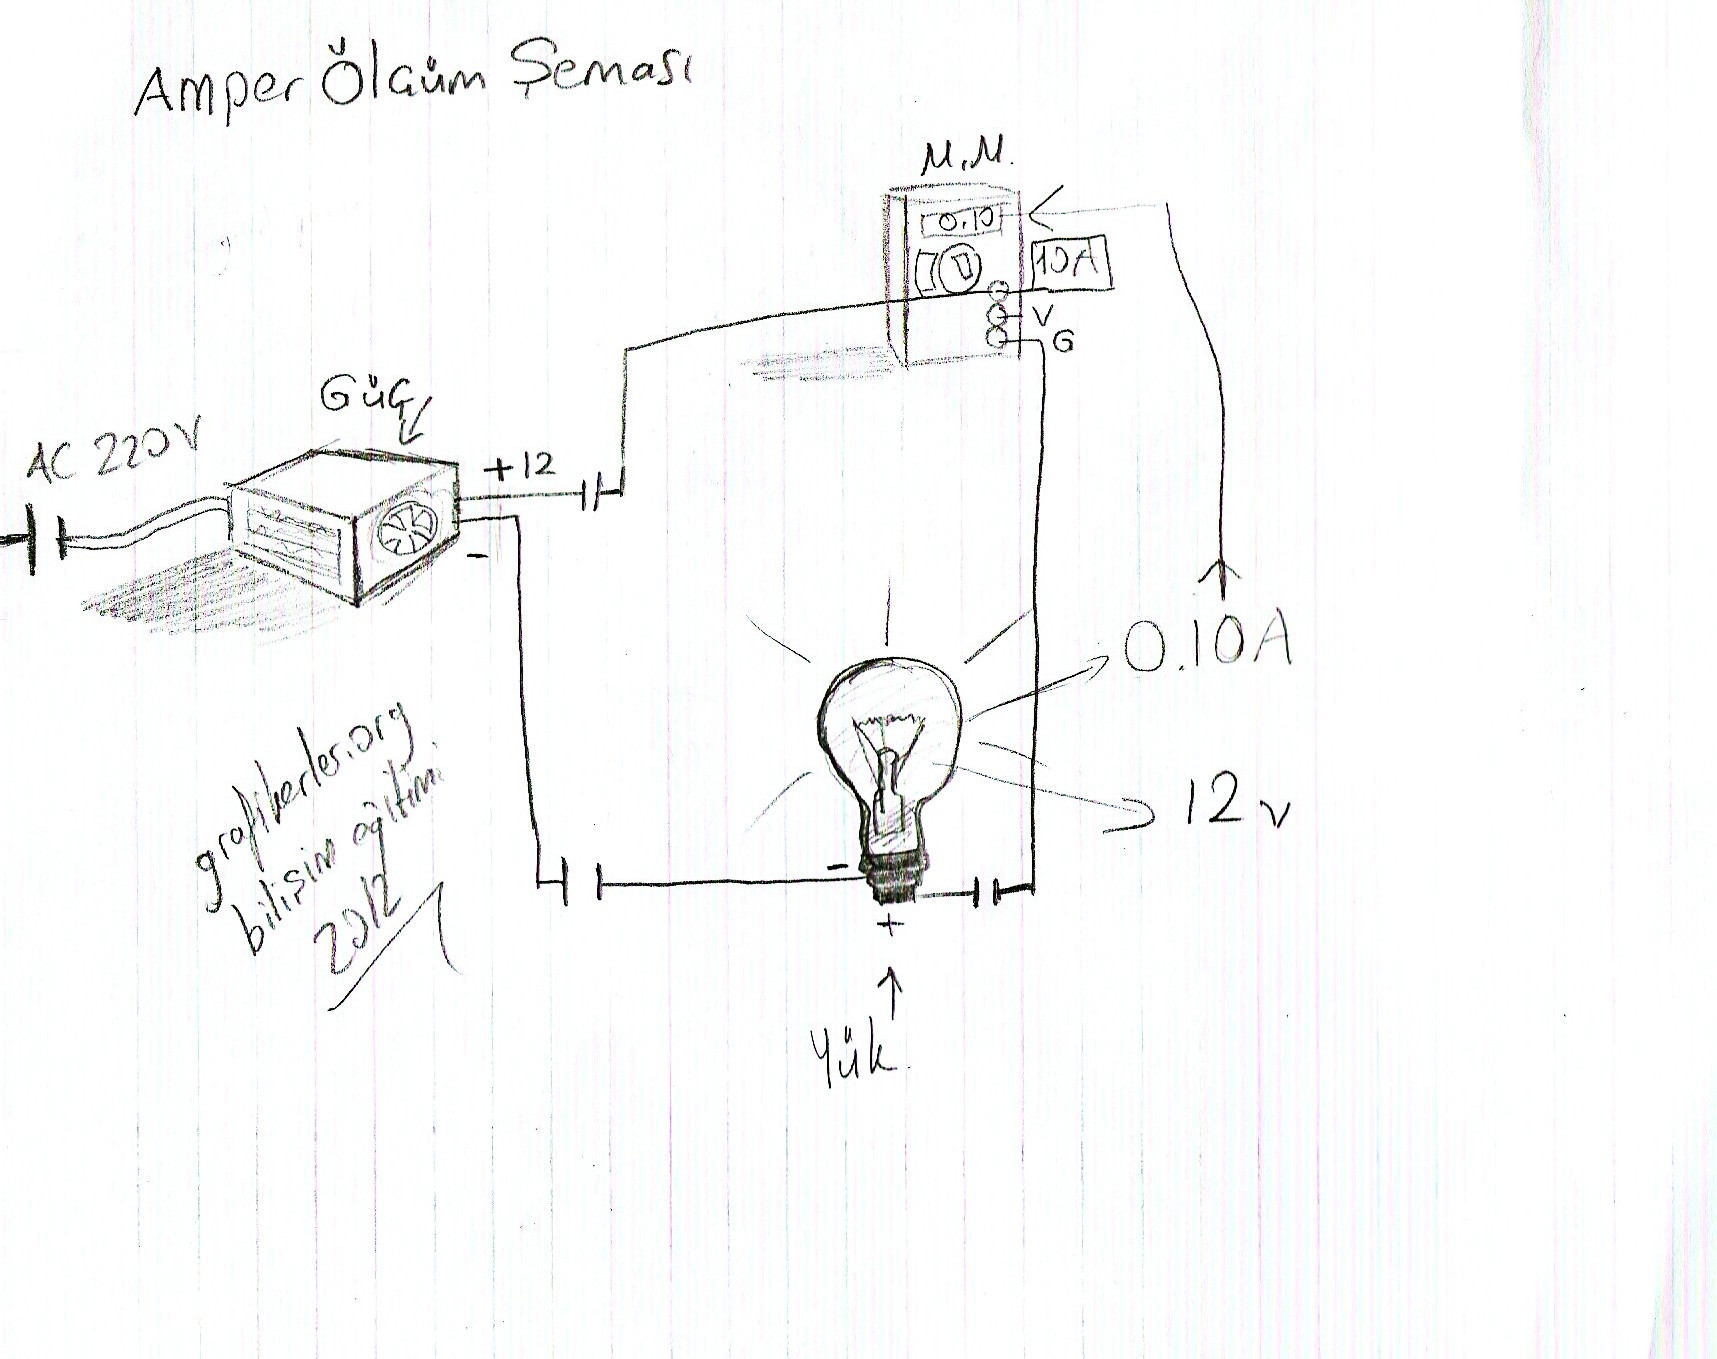 Amper Ölçüm Şeması
M.M.
0.10
10A
V
G
Güç
AC 220V
+12
-
0.10A
12v
-
+
Yük
grafikerler.org
bilişim eğitimi
2012